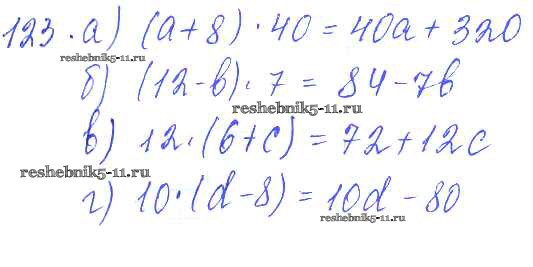 123. а) (a + 8) · 40 = 40a + 320
reshebnik5-11.ru
б) (12 - b) · 7 = 84 - 7b
reshebnik5-11.ru
в) 12 · (6 + c) = 72 + 12c
reshebnik5-11.ru
г) 10 · (d - 8) = 10d - 80
reshebnik5-11.ru